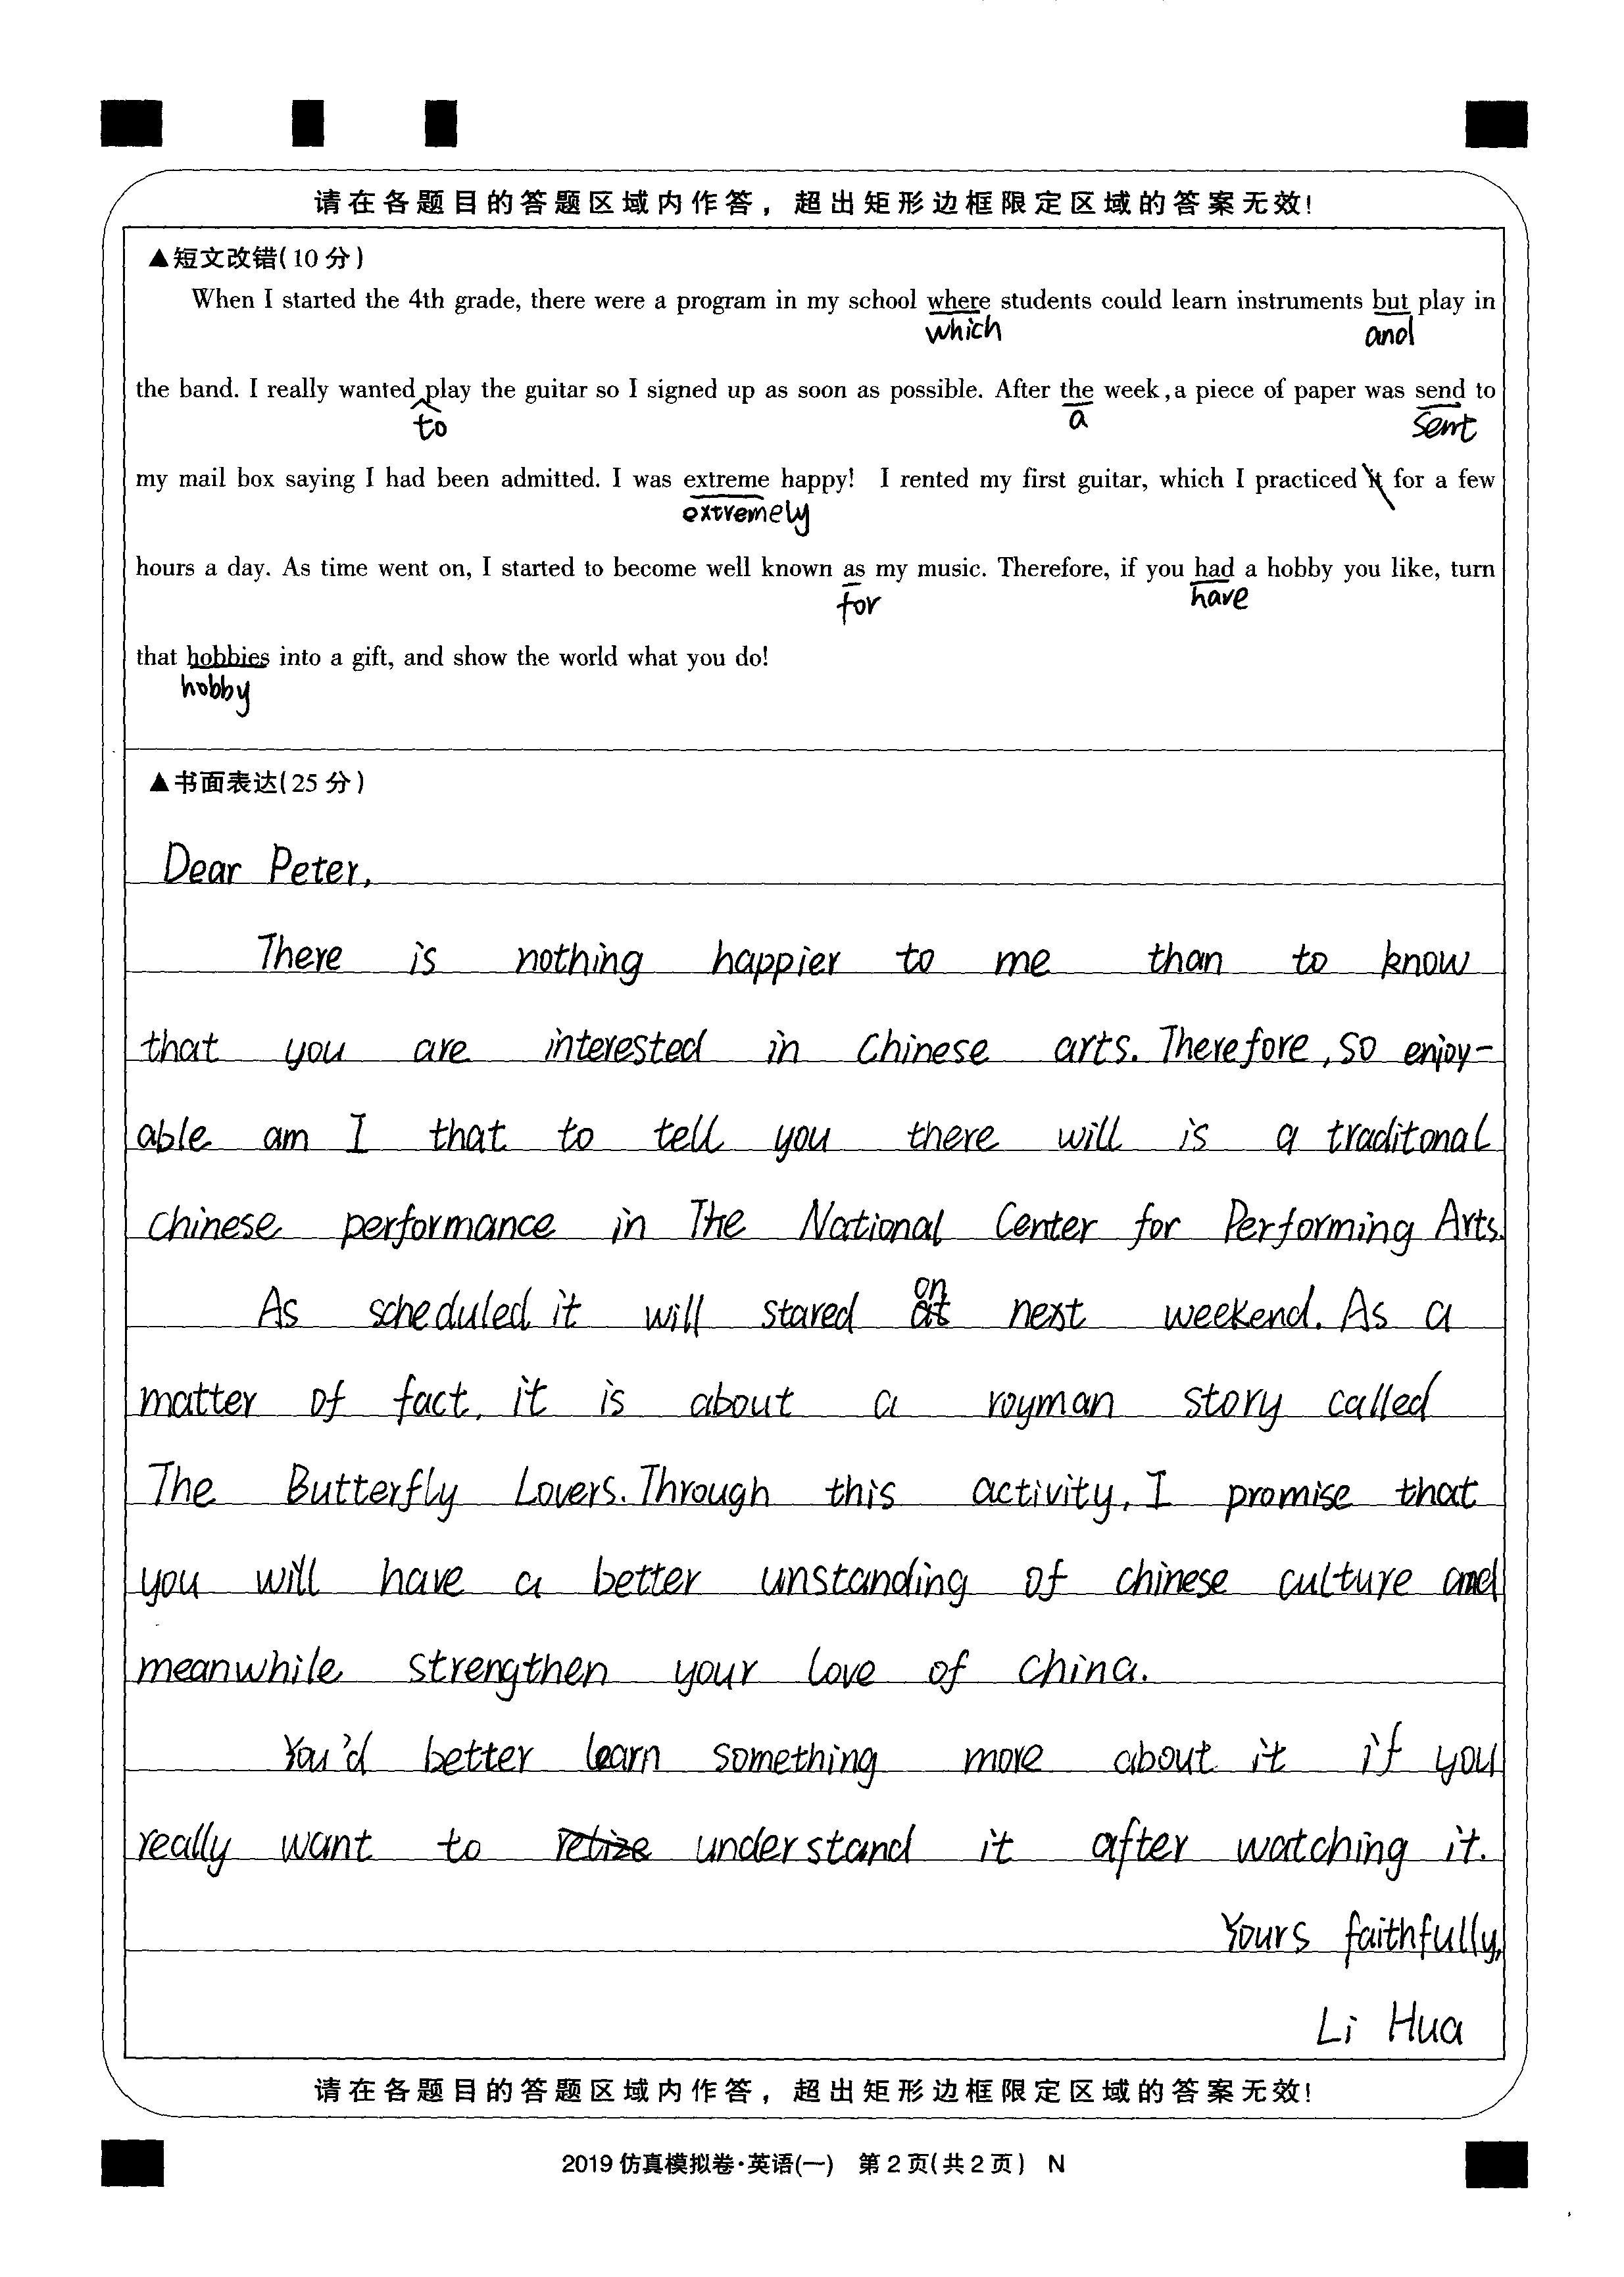 请在各题目的答题区域内作答，超出矩形边框限定区域的答案无效!
▲短文改错(10分)
When I started the 4th grade, there were a program in my school where students could learn instruments but play in
which and
the band. I really wanted play the guitar so I signed up as soon as possible. After the week, a piece of paper was send to
to a sent
my mail box saying I had been admitted. I was extreme happy! I rented my first guitar, which I practiced it for a few
extremely
hours a day. As time went on, I started to become well known as my music. Therefore, if you had a hobby you like, turn
for have
that hobbies into a gift, and show the world what you do!
hobby
▲书面表达(25分)
Dear Peter,
There is nothing happier to me than to know
that you are interested in Chinese arts. Therefore, so enjoy-
able am I that to tell you there will is a traditonal
chinese performance in The National Center for Performing Arts.
on
As scheduled it will stared at next weekend. As a
matter of fact, it is about a royman story called
The Butterfly Lovers. Through this activity, I promise that
you will have a better unstanding of chinese culture and
meanwhile strengthen your love of china.
You'd better learn something more about it if you
really want to retize understand it after watching it.
Yours faithfully,
Li Hua
请在各题目的答题区域内作答，超出矩形边框限定区域的答案无效!
2019仿真模拟卷·英语(一) 第2页(共2页) N